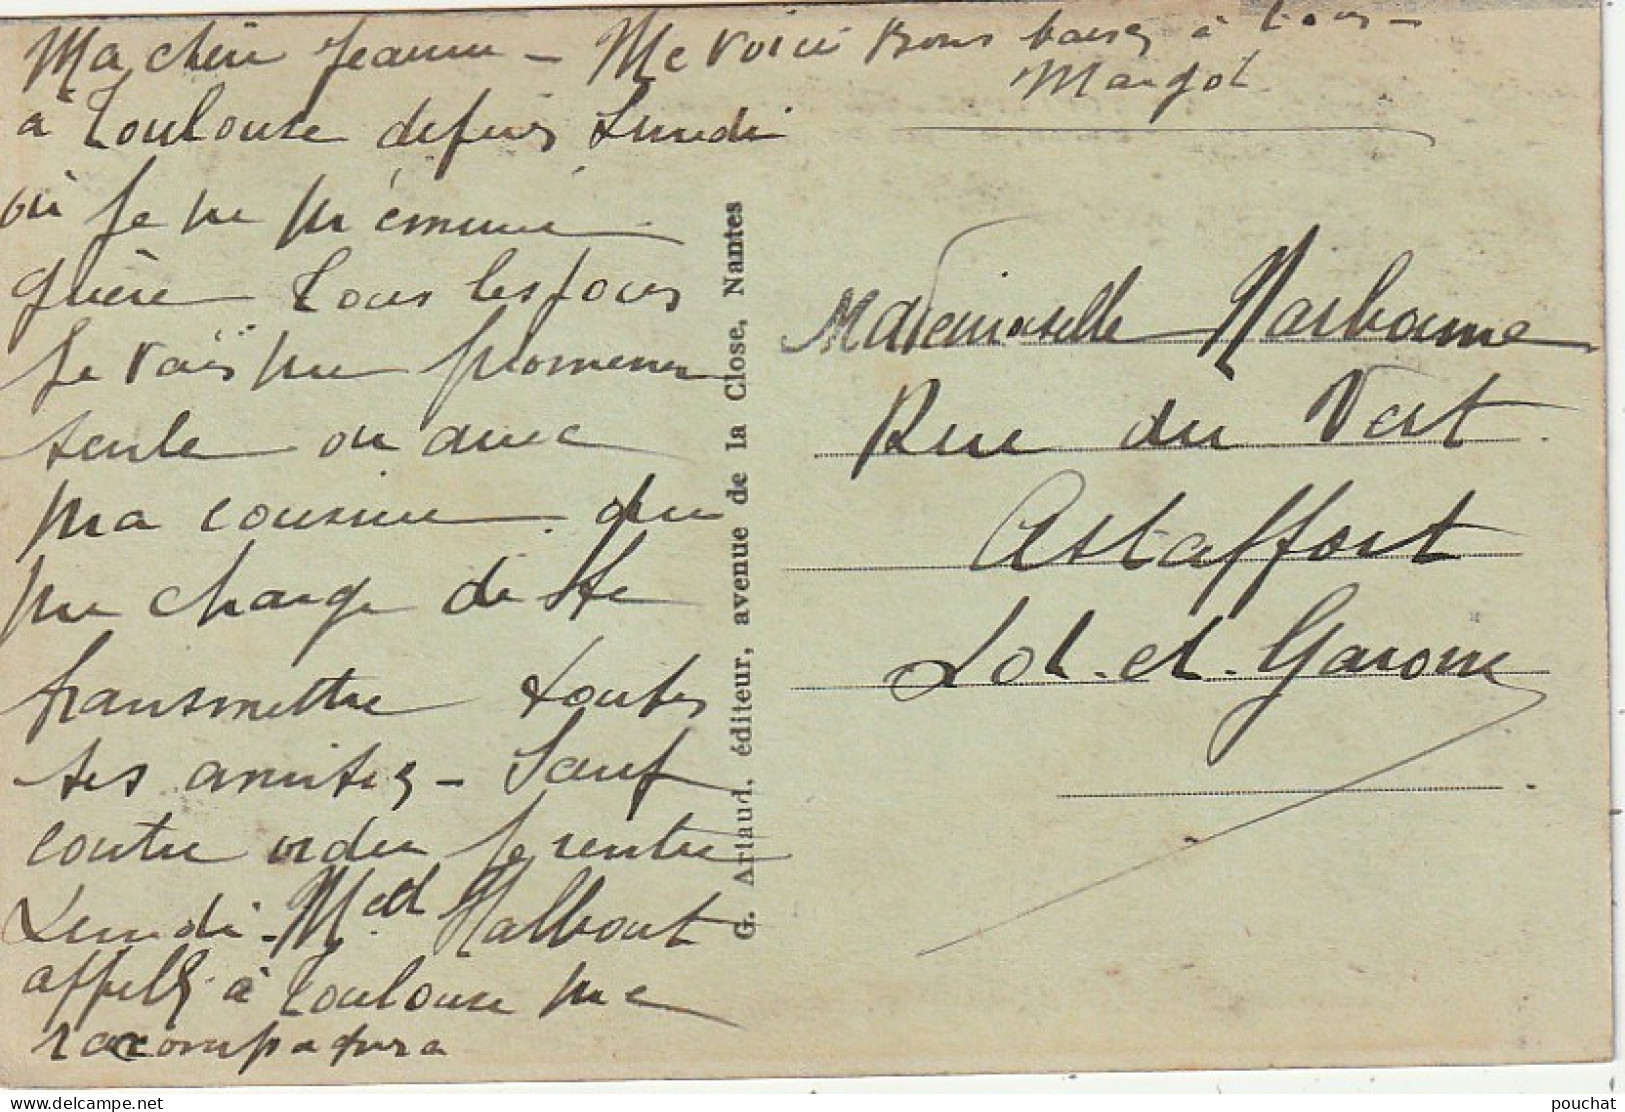 Ma chère Jeanne - Me voici
à Toulouse depuis Lundi
où je ne m'émeuve
guère Tous les jours
je vais me promener
seule ou avec
ma cousine qui
me charge de te
transmettre toutes
ses amitiés - Sauf
contre ordre je rentre
Lundi - Med Malbout
appelé à Toulouse me
racompagnera
Bons baisers à tous -
Margot
G. Artaud, éditeur, avenue de la Close, Nantes
Mademoiselle Narbonne
Rue du Vert
Astaffort
Lot-et-Garonne
pouchat